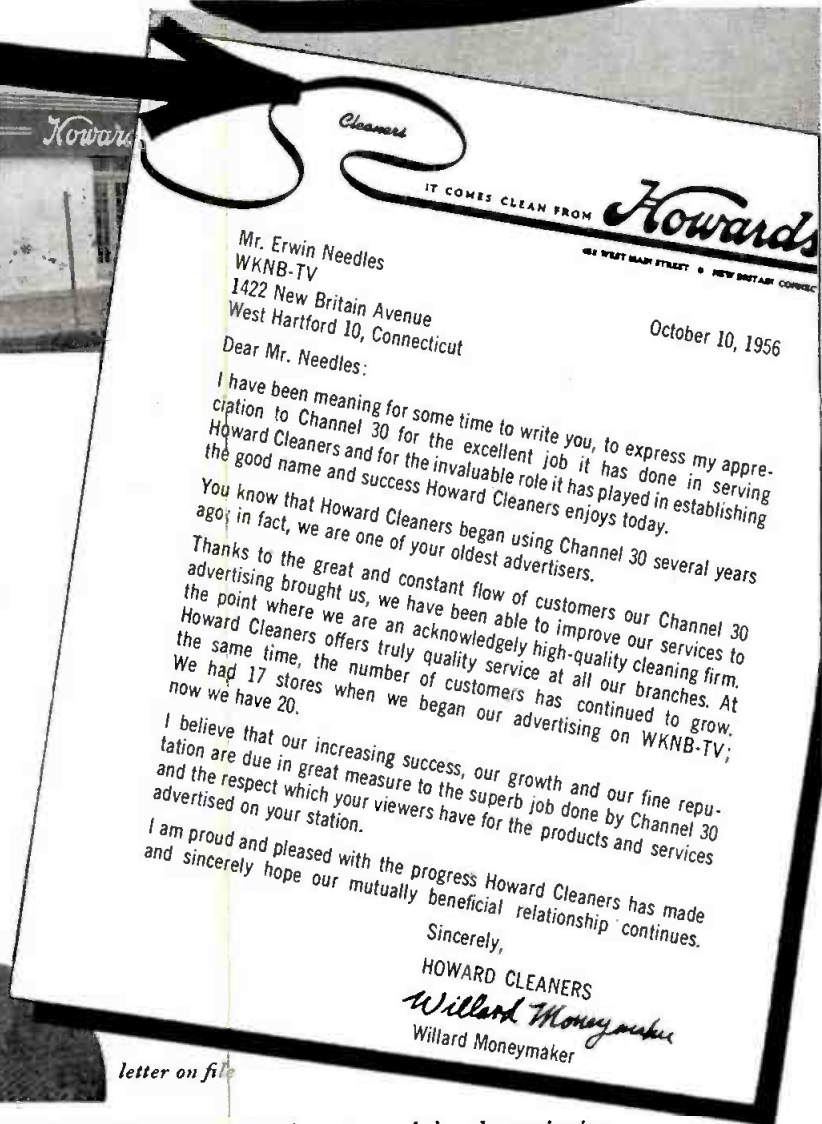 Howard
Cleaners
IT COMES CLEAN FROM Howards
WEST MAIN STREET • NEW BRITAIN CONNEC
Mr. Erwin Needles
WKNB-TV
1422 New Britain Avenue
West Hartford 10, Connecticut
October 10, 1956
Dear Mr. Needles:
I have been meaning for some time to write you, to express my appre-
ciation to Channel 30 for the excellent job it has done in serving
Howard Cleaners and for the invaluable role it has played in establishing
the good name and success Howard Cleaners enjoys today.
You know that Howard Cleaners began using Channel 30 several years
ago; in fact, we are one of your oldest advertisers.
Thanks to the great and constant flow of customers our Channel 30
advertising brought us, we have been able to improve our services to
the point where we are an acknowledgely high-quality cleaning firm.
Howard Cleaners offers truly quality service at all our branches. At
the same time, the number of customers has continued to grow.
We had 17 stores when we began our advertising on WKNB-TV;
now we have 20.
I believe that our increasing success, our growth and our fine repu-
tation are due in great measure to the superb job done by Channel 30
and the respect which your viewers have for the products and services
advertised on your station.
I am proud and pleased with the progress Howard Cleaners has made
and sincerely hope our mutually beneficial relationship continues.
Sincerely,
HOWARD CLEANERS
Willard Moneymaker
Willard Moneymaker
letter on file